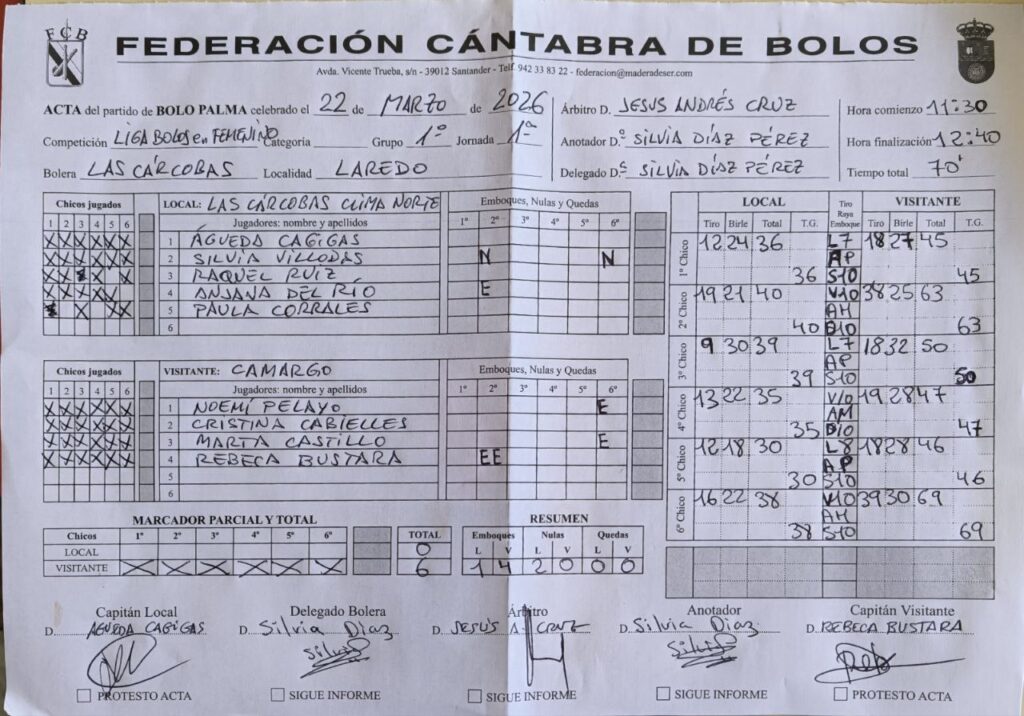 FCB
FEDERACIÓN CÁNTABRA DE BOLOS
Avda. Vicente Trueba, s/n - 39012 Santander - Telf. 942 33 83 22 - federacion@maderadeser.com
ACTA del partido de BOLO PALMA celebrado el 22 de MARZO de 2026
Árbitro D. JESUS ANDRÉS CRUZ
Hora comienzo 11:30
Competición LIGA BOLOS en FEMENINO Categoria Grupo 1º Jornada 1ª
Anotador D.ª SILVIA DÍAZ PÉREZ
Hora finalización 12:40
Bolera LAS CÁRCOBAS Localidad LAREDO
Delegado D.ª SILVIA DÍAZ PÉREZ
Tiempo total 70'
Chicos jugados LOCAL: LAS CÁRCOBAS CLIMA NORTE Emboques, Nulas y Quedas
1 2 3 4 5 6 Jugadores: nombre y apellidos 1º 2º 3º 4º 5º 6º
X X X X X X 1 ÁGUEDA CAGIGAS
X X X X X X 2 SILVIA VILLODAS N N
X X X X X 3 RAQUEL RUIZ
X X X X X 4 ANJANA DEL RÍO E
X X X 5 PAULA CORRALES
6
Chicos jugados VISITANTE: CAMARGO Emboques, Nulas y Quedas
1 2 3 4 5 6 Jugadores: nombre y apellidos 1º 2º 3º 4º 5º 6º
X X X X X X 1 NOEMÍ PELAYO E
X X X X X X 2 CRISTINA CABIELLES
X X X X X X 3 MARTA CASTILLO E
X X X X X X 4 REBECA BUSTARA EE
5
6
LOCAL Tiro Raya Emboque VISITANTE
Tiro Birle Total T.G. Tiro Birle Total T.G.
1º Chico 12 24 36 L7 18 27 45
AP
36 S10 45
2º Chico 19 21 40 V10 38 25 63
AM
40 D10 63
3º Chico 9 30 39 L7 18 32 50
AP
39 S10 50
4º Chico 13 22 35 V10 19 28 47
AM
35 D10 47
5º Chico 12 18 30 L8 18 28 46
AP
30 S10 46
6º Chico 16 22 38 V10 39 30 69
AM
38 S10 69
MARCADOR PARCIAL Y TOTAL
Chicos 1º 2º 3º 4º 5º 6º TOTAL
LOCAL 0
VISITANTE X X X X X X 6
RESUMEN
Emboques Nulas Quedas
L V L V L V
1 4 2 0 0 0
Capitán Local Delegado Bolera Árbitro Anotador Capitán Visitante
D. AGUEDA CAGIGAS D. Silvia Diaz D. JESÚS A. CRUZ D. Silvia Diaz D. REBECA BUSTARA
PROTESTO ACTA SIGUE INFORME SIGUE INFORME SIGUE INFORME PROTESTO ACTA